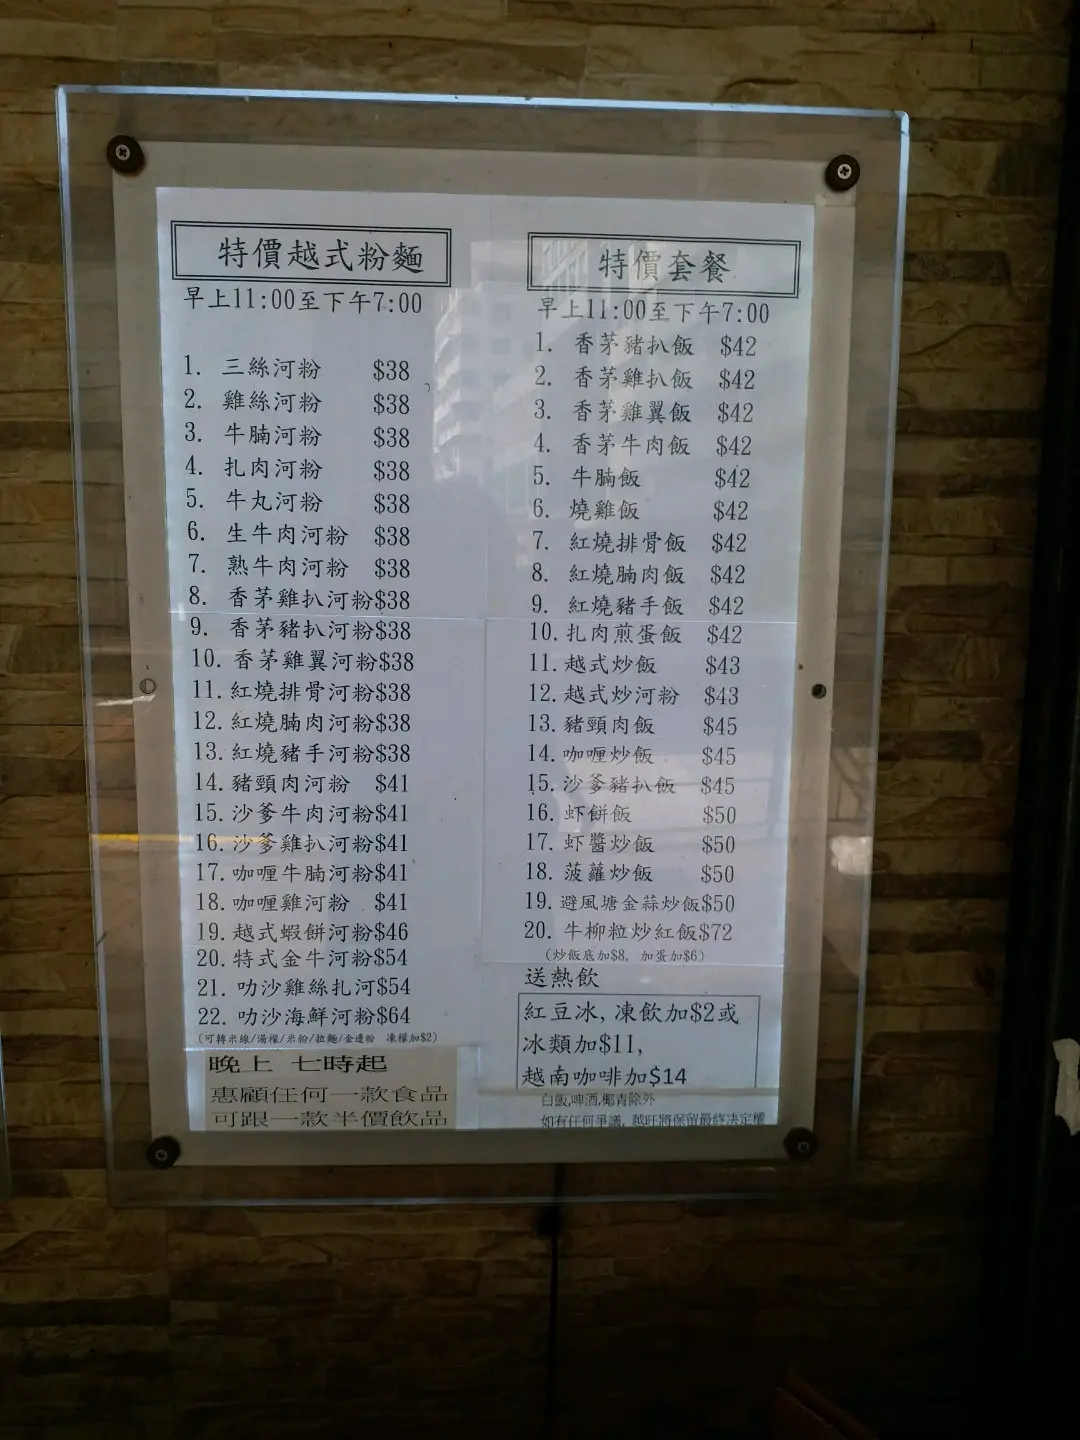 特價越式粉麵
早上11:00至下午7:00
1. 三絲河粉 $38
2. 雞絲河粉 $38
3. 牛腩河粉 $38
4. 扎肉河粉 $38
5. 牛丸河粉 $38
6. 生牛肉河粉 $38
7. 熟牛肉河粉 $38
8. 香茅雞扒河粉$38
9. 香茅豬扒河粉$38
10. 香茅雞翼河粉$38
11. 紅燒排骨河粉$38
12. 紅燒腩肉河粉$38
13. 紅燒豬手河粉$38
14. 豬頸肉河粉 $41
15. 沙爹牛肉河粉$41
16. 沙爹雞扒河粉$41
17. 咖喱牛腩河粉$41
18. 咖喱雞河粉 $41
19. 越式蝦餅河粉$46
20. 特式金牛河粉$54
21. 叻沙雞絲扎河$54
22. 叻沙海鮮河粉$64
(可轉米線/湯檬/米粉/拉麵/金邊粉 凍檬加$2)
晚上 七時起
惠顧任何一款食品
可跟一款半價飲品
特價套餐
早上11:00至下午7:00
1. 香茅豬扒飯 $42
2. 香茅雞扒飯 $42
3. 香茅雞翼飯 $42
4. 香茅牛肉飯 $42
5. 牛腩飯 $42
6. 燒雞飯 $42
7. 紅燒排骨飯 $42
8. 紅燒腩肉飯 $42
9. 紅燒豬手飯 $42
10. 扎肉煎蛋飯 $42
11. 越式炒飯 $43
12. 越式炒河粉 $43
13. 豬頸肉飯 $45
14. 咖喱炒飯 $45
15. 沙爹豬扒飯 $45
16. 虾餅飯 $50
17. 虾醬炒飯 $50
18. 菠蘿炒飯 $50
19. 避風塘金蒜炒飯$50
20. 牛柳粒炒紅飯$72
(炒飯底加$8, 加蛋加$6)
送熱飲
紅豆冰, 凍飲加$2或
冰類加$11,
越南咖啡加$14
白飯,啤酒,椰青除外
如有任何爭議, 越旺將保留最終決定權